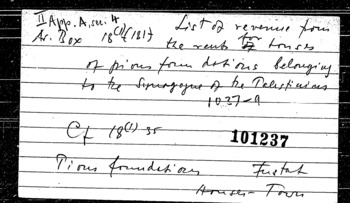 II App. A, sec. 4
Ar. Box 18(1)(181) List of revenue from
the rents for houses
of pious foundations belonging
to the Synagogue of the Palestinians
1037-9
Cf 18(1) 35
101237
Pious foundations Fustat
Houses - Town